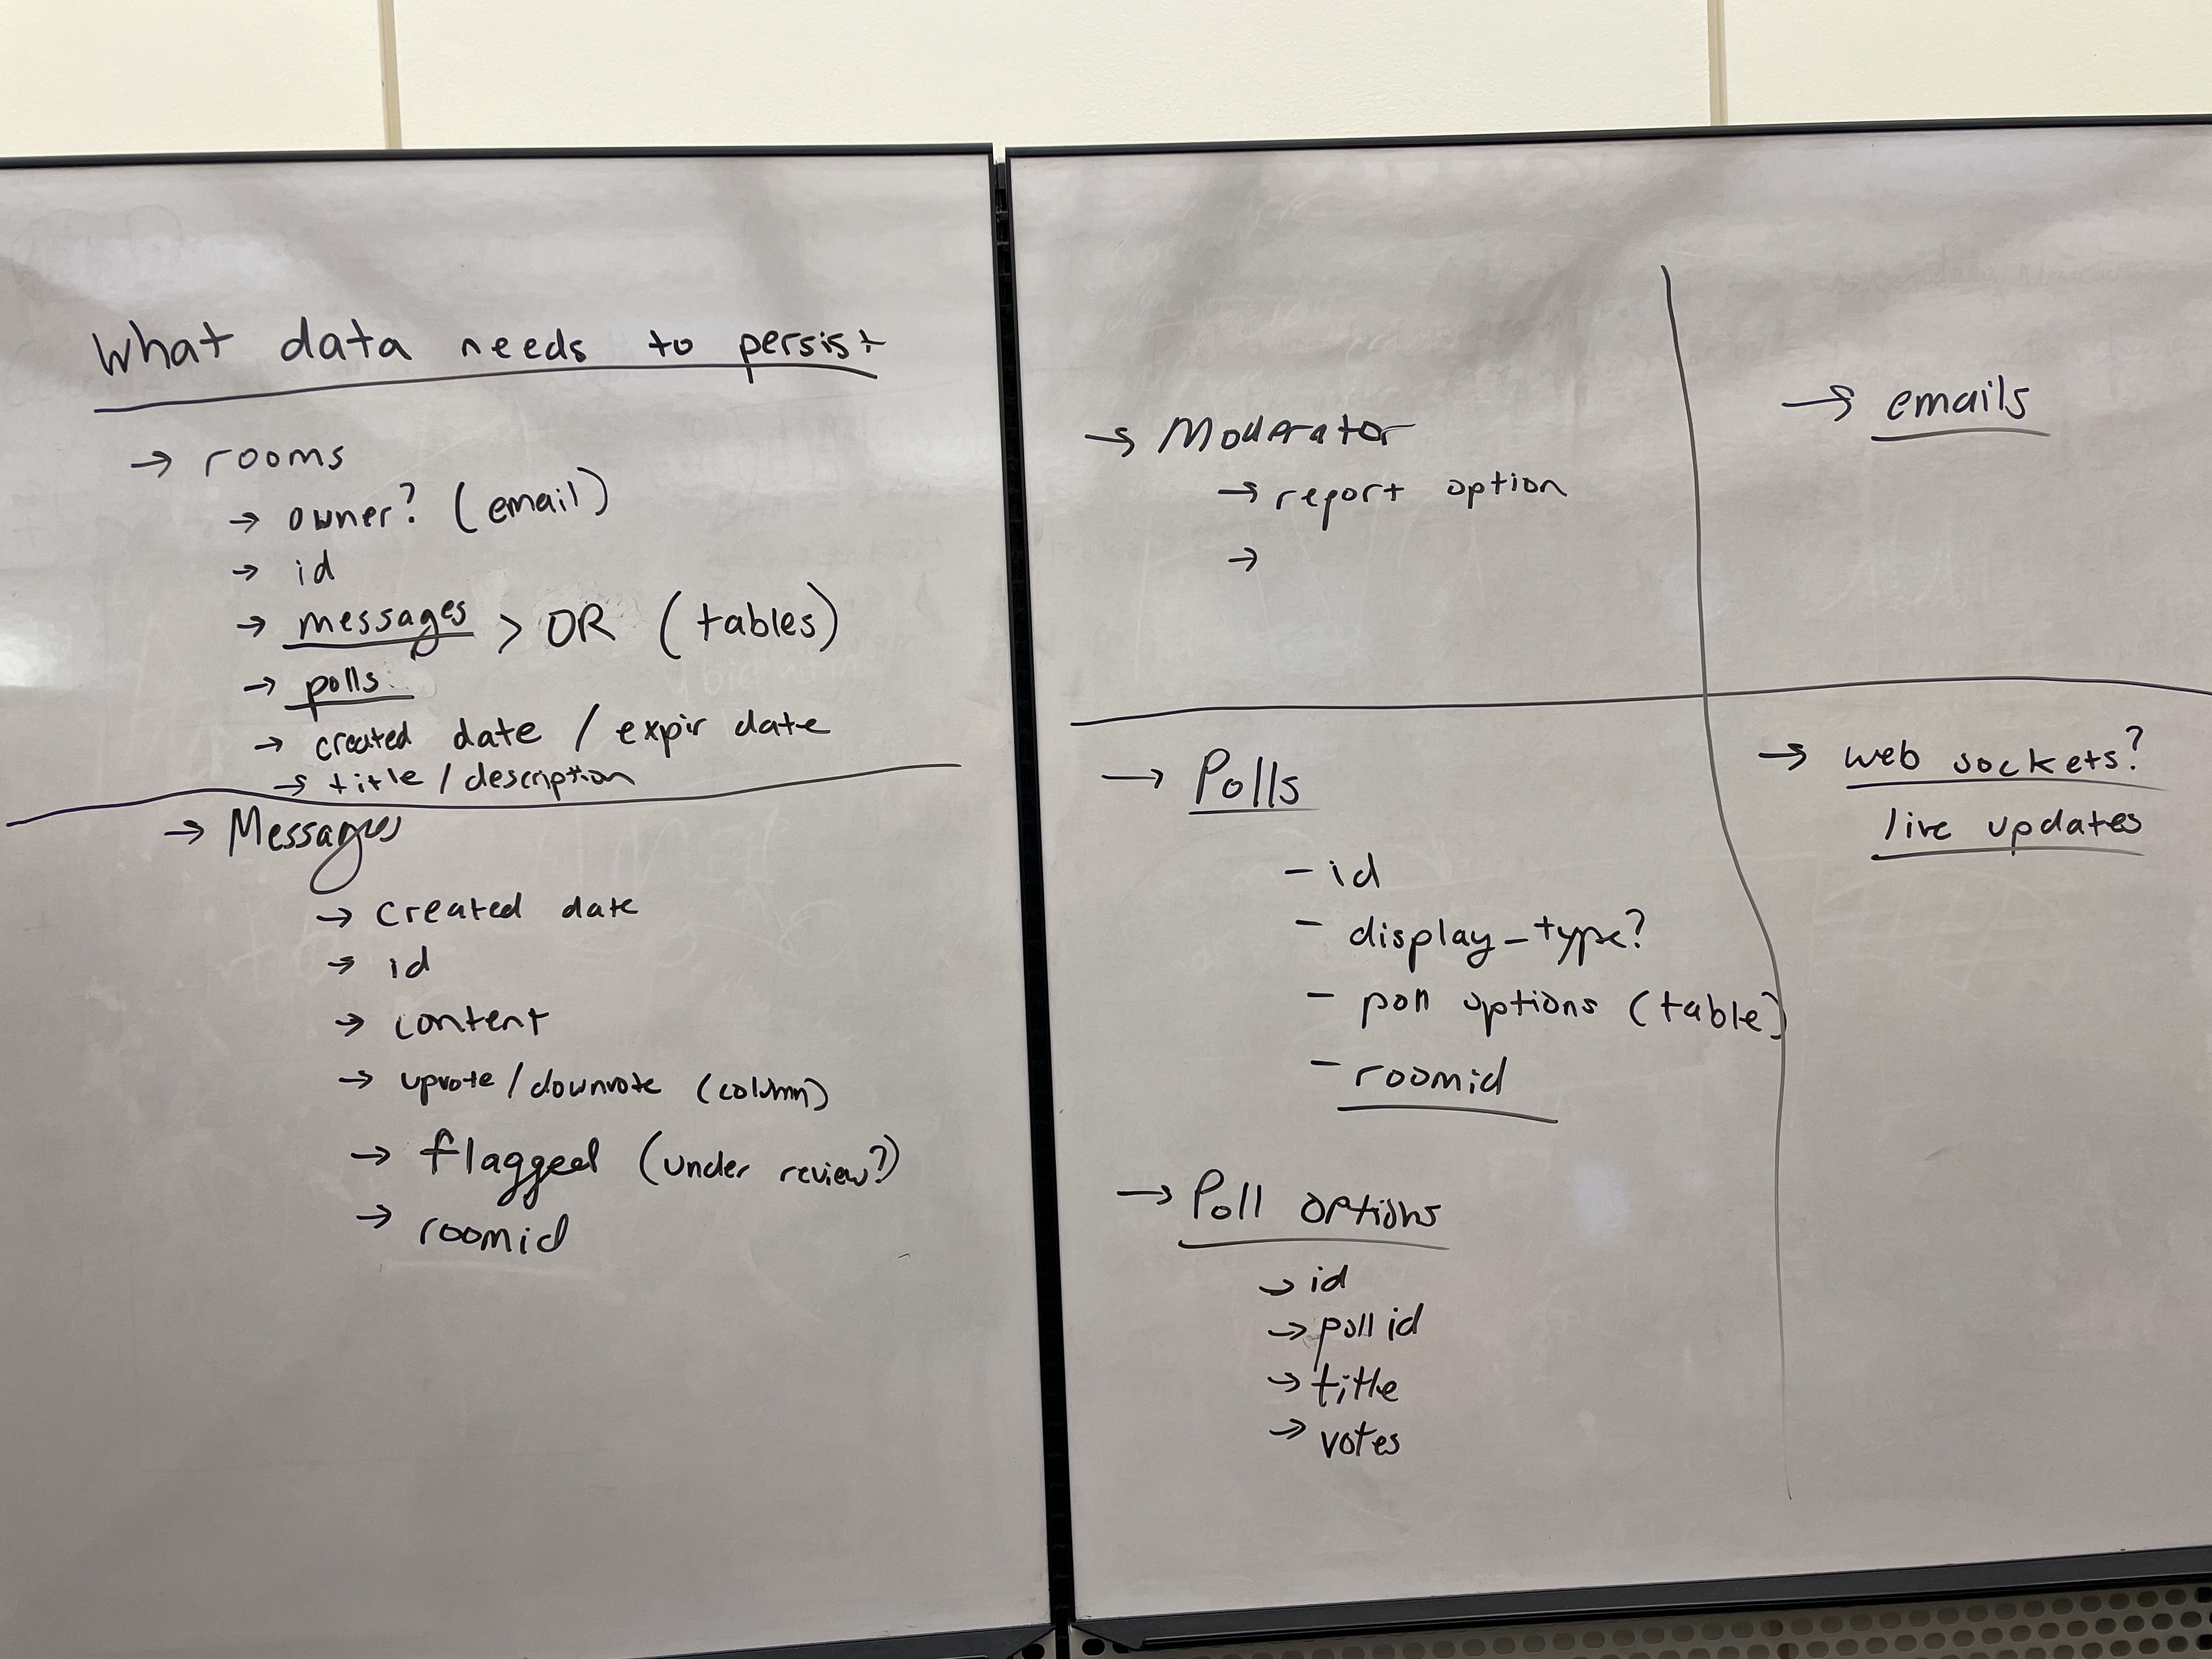 What data needs to persist
→ rooms
→ owner? (email)
→ id
→ messages > OR (tables)
→ polls
→ created date / expir date
→ title / description
→ Messages
→ created date
→ id
→ content
→ upvote / downvote (column)
→ flagged (under review?)
→ roomid
→ Moderator
→ report option
→
→ Polls
- id
- display_type?
- poll options (table)
- roomid
→ Poll options
→ id
→ poll id
→ title
→ votes
→ emails
→ web sockets?
live updates